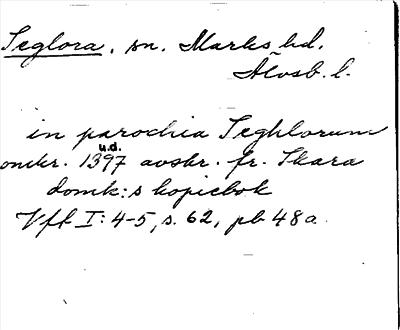 Seglora, sn. Marks hd.
Älvsb. l.
in parochia Seghlorum
u.d.
omkr. 1397 avskr. fr. Skara
domk:s kopiebok
Vft I: 4-5, s. 62, pb 48a